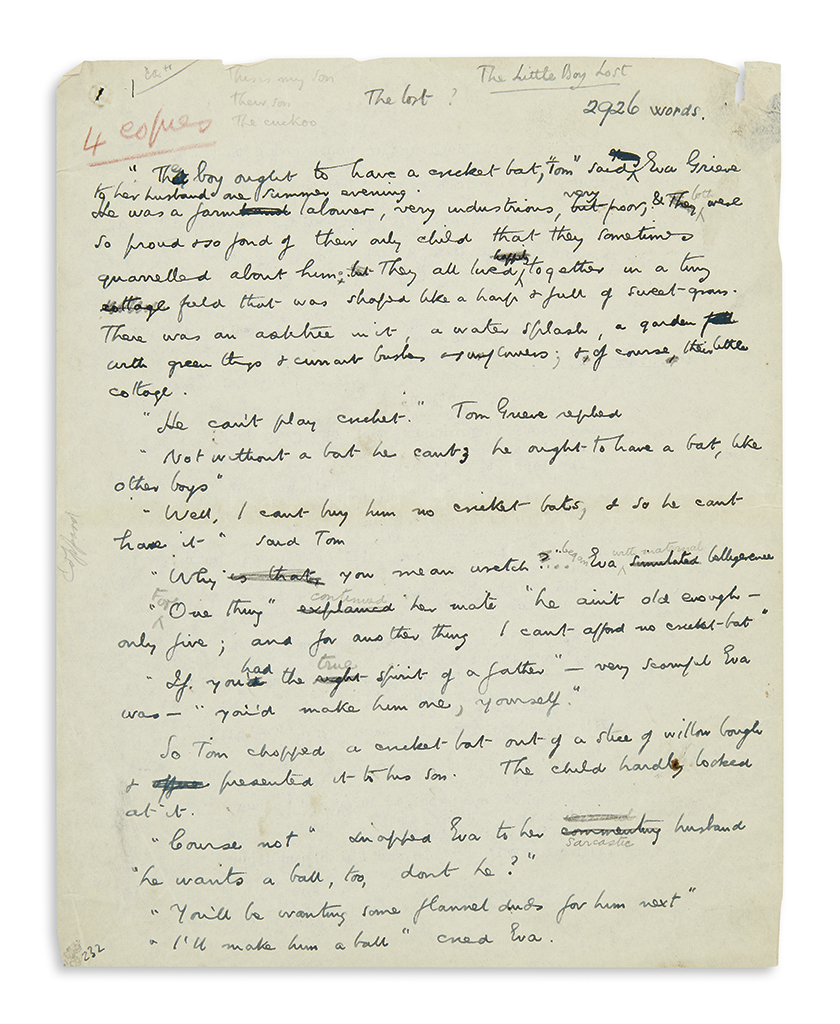 This is my son
The Little Boy Lost
their son
The lost ?
The cuckoo
2926 words.
4 copies
" The boy ought to have a cricket bat, "Tom" said Eva Grieve
to her husband one summer evening.
He was a farm labourer, very industrious, but very poor, & They both were
so proud & so fond of their only child that they sometimes
quarrelled about him; but They all lived happily together in a tiny
cottage field that was shaped like a harp & full of sweet grass.
There was an ashtree in it, a water splash, a garden
with green things & currant bushes & flowers; &, of course, their little
cottage.
"He can't play cricket." Tom Grieve replied
"Not without a bat he cant; he ought to have a bat, like
other boys"
"Well, I cant buy him no cricket bats, & so he cant
have it" said Tom
"Why is that, you mean wretch?"... began Eva with maternal simulated belligerence
"For One thing" explained continued her mate "he ain't old enough –
only five; and for another thing I cant afford no cricket-bat"
"If you'd had the right true spirit of a father" – very scornful Eva
was – "you'd make him one, yourself."
So Tom chopped a cricket-bat out of a slice of willow bough
& presented it to his son. The child hardly looked
at it.
"Course not" snapped Eva to her commenting sarcastic husband
"he wants a ball, too, dont he?"
"You'll be wanting some flannel duds for him next"
"I'll make him a ball" cried Eva.
232